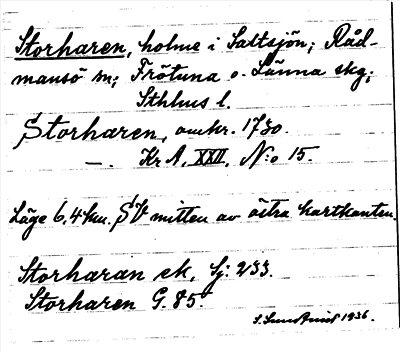 Storharen, holme i Saltsjön; Råd-
mansö sn; Frötuna o. Länna skg;
Sthlms l.
Storharen, omkr. 1730.
—. Kr A. XXII. N:o 15.
Läge 6,4 km. SV mitten av östra kartkanten.
Storharan ek, Sj: 233.
Storharen G. 85.
1936.